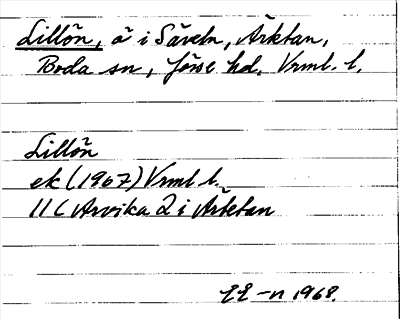 Lillön, ö i Säveln, Ärktan,
Boda sn, Jösse hd. Vrml. l.
Lillön
ek (1967) Vrml l.
11C Arvika 2 i Ärktan
1968.